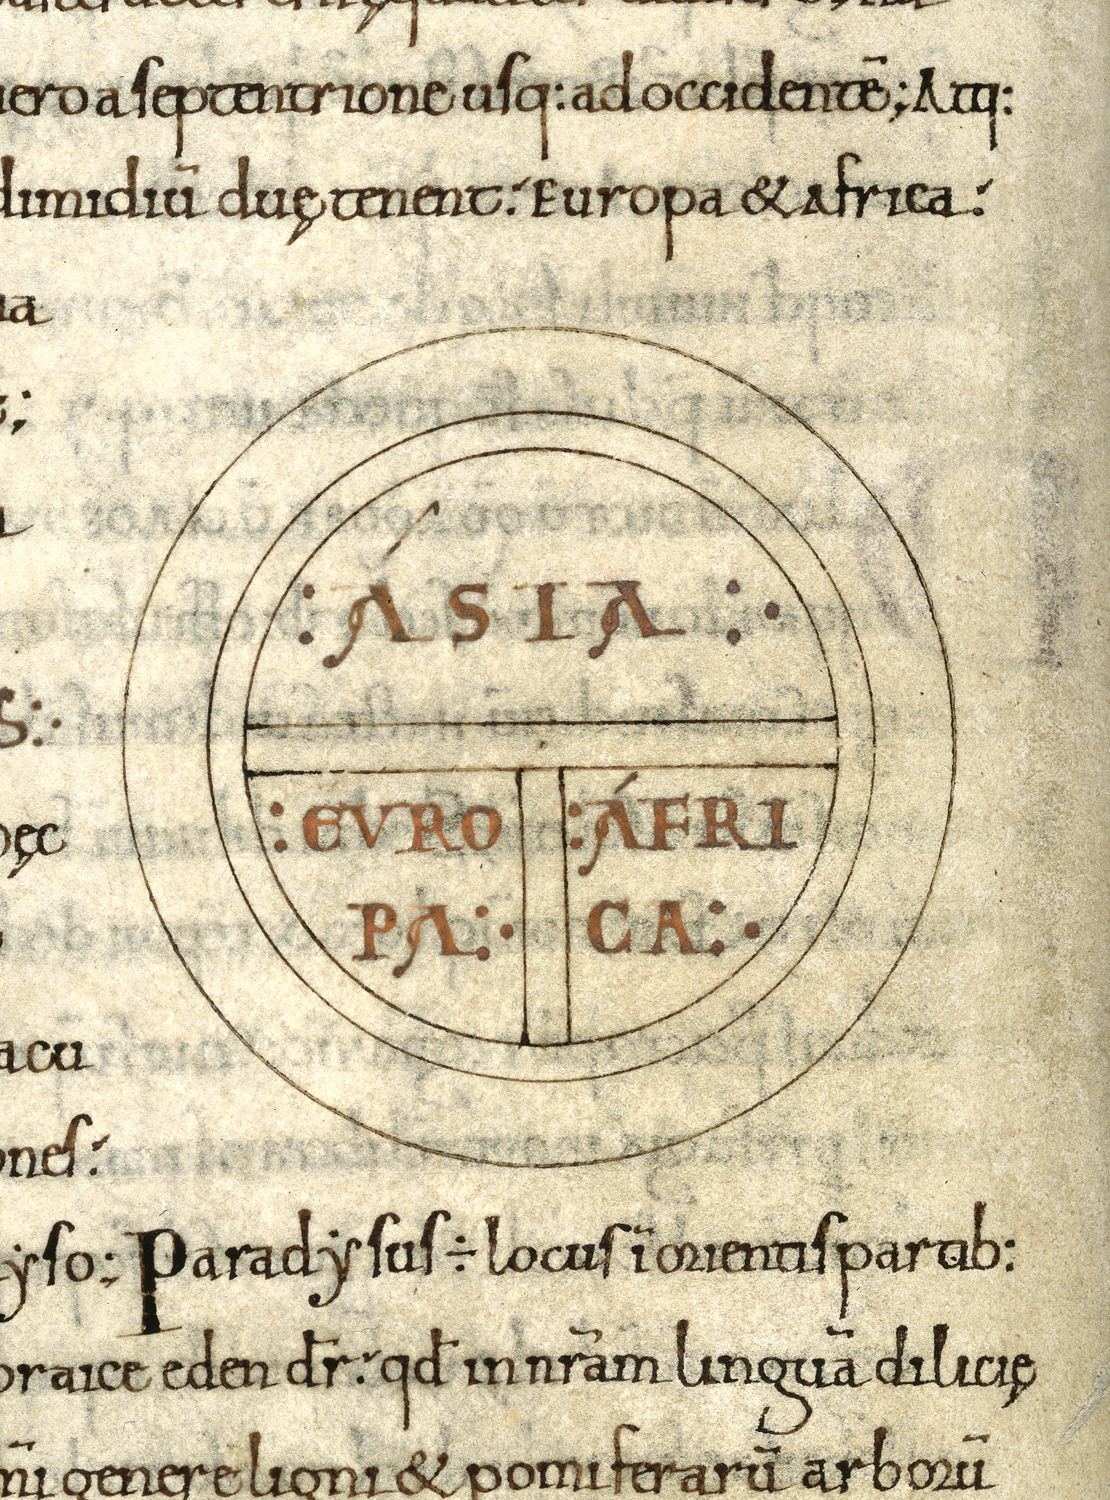 uero a septentrione usq: ad occidentē; Atq:
dimidiū duę tenent: Europa & Africa:
:ASIA:·
:EVRO
PA:·
:AFRI
CA:·
acu
ones:
yso; Paradysus ÷ locus ī orientis partib:
braice eden dr̄: qd̄ in nrām linguā dilicię
ni genere ligni & pomiferarū arborū